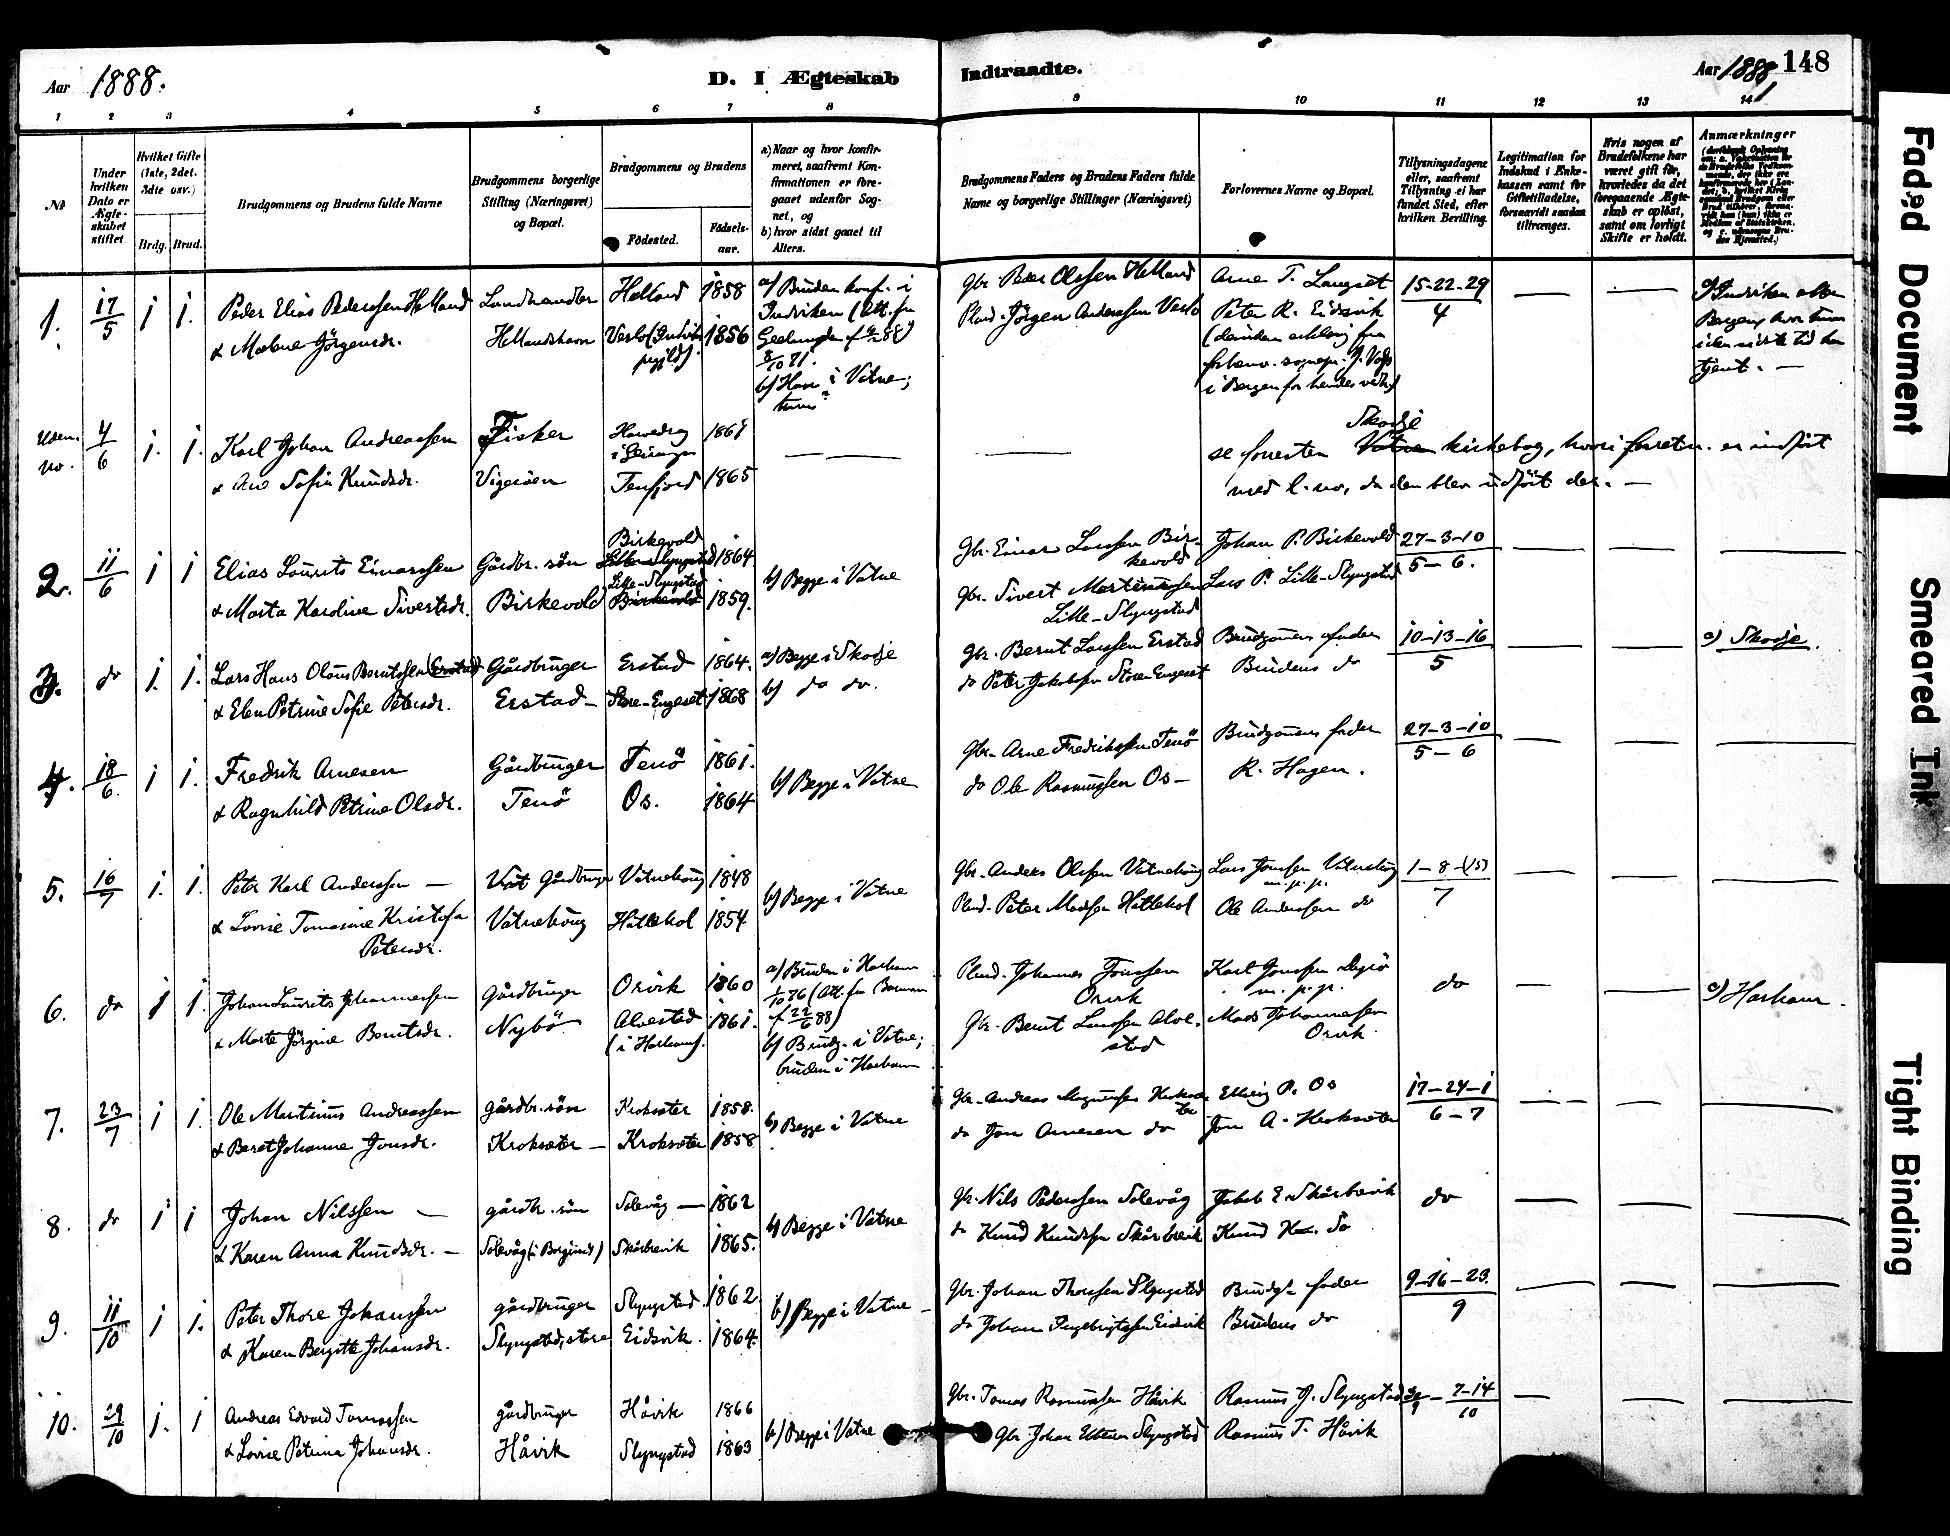 Aar 1888.
D. I Ægteskab Indtraadte.
Aar 1888 148
1 2 3 4 5 6 7 8 9 10 11 12 13 14
No
Under hvilken Dato er Ægteskabet stiftet
Hvilket Gifte (1ste, 2det. 3dte osv.)
Brdg. Brud.
Brudgommens og Brudens fulde Navne
Brudgommens borgerlige Stilling (Næringsvei) og Bopæl.
Brudgommens og Brudens
Fødested. Fødselsaar.
a) Naar og hvor konfirmeret, saafremt Konfirmationen er foregaaet udenfor Sognet, og
b) hvor sidst gaaet til Alters.
Brudgommens Faders og Brudens Faders fulde Navne og borgerlige Stillinger (Næringsvei)
Forlovernes Navne og Bopæl.
Tillysningsdagene eller, saafremt Tillysning ei har fundet Sted, efter hvilken Bevilling.
Legitimation for Indskud i Enkekassen samt for Giftetilladelse, forsaavidt saadan tiltrænges.
Hvis nogen af Brudefolkene har været gift før, hvorledes da det foregaaende Ægteskab er opløst, samt om lovligt Skifte er holdt.
Anmærkninger
1. 17/5 1 1. Peder Elias Pederssen Helland Landhandler Helland 1858 a) Bruden konf. i Gbr. Peder Olssen Helland Arne T. Langset 15-22-29/4
& Malene Jørgensdr. Hellandshavn Verlo 1856 Jørgen Anderssen Peter R. Eidsvik
8/10 71.
b) Han i Vatne; i Bergen tjent. —
Uden no. 4/6 1. 1. Karl Johan Andreassen Fisker 1861 Skodje
se forresten Vatne kirkebog, hvori forretn. er indført
& Ane Sofie Knudsdr. Vigerøen Tenfjord 1865 med l. no, da den blev udført der. —
2. 11/6 1 1 Elias Laurits Einarssen Gårdbr. søn Birkevold Lille-Slyngstad 1864 b) Begge i Vatne Gbr. Einar Larssen Birkevold Johan P. Birkevold 27-3-10/5-6.
& Marta Karoline Sivertsdr. Birkevold Lille-Slyngstad Birkevold 1859. Gbr. Sivert Martinussen Lille-Slyngstad Lars P. Lille-Slyngstad
3. do 1. 1. Lars Hans Olaus Berntssen (Erstad Gårdbruger Erstad 1864. a) Begge i Skodje Gbr. Bernt Larssen Erstad Brudgommens fader 10-13-16/5 c) Skodje.
& Elen Petrine Sofie Petersdr. Erstad — Store-Engeset 1868 b) do do. do Peter Jakobsen Store Engeset Brudens do
4. 18/6. 1 1. Fredrik Arnesen Gårdbruger Tenö 1861. b) Begge i Vatne Gbr. Arne Fredrikssen Tenö Brudgommens fader 27-3-10/5-6
& Ragnhild Petrine Olsdr. Tenö Os. 1864 do Ole Rasmussen Os — R. Hagen.
5. 16/7 1. 1. Peter Karl Anderssen — Gårdbruger Vatnehaug 1848 b) Begge i Vatne Gbr. Anders Olssen Vatnehaug Lars Jonssen Vatnehaug 1-8-(15)/7
m. p. p.
& Lovise Tomasine Kristofa Petersdr. Vatnehaug Hatlehol 1854 Peter Madssen Hatlehol Ole Anderssen do
6. do 1 1. Johan Laurits Johannessen Gårdbruger Orvik 1860 a) Bruden i Harham Johannes Jonssen Orvik Karl Jonssen do c) Harham.
m. p. p.
& Marte Jørgine Berntsdr. Nybö Alvestad (i Harham). 1861. Gbr. Bernt Larssen Alvestad Mads Johannessen Orvik.
b) Brudg. i Vatne;
bruden i Harham
7. 23/7 1 1. Ole Martinus Andreassen gårdbr. søn Kroksæter 1858. b) Begge i Vatne Gbr. Andreas Magnussen Kroksæter Elling P. Os 17-24-1/6-7
& Beret Johanne Jonsdr. Kroksæter — Kroksæter 1858 do Jon Arnesen do Jon A. Kroksæter
8. do 1 1 Johan Nilssen — gårdbr. søn Solevåg — 1862 b) Begge i Vatne Gbr. Nils Pederssen Solevåg Jakob E. Skårbrevik do
& Karen Anna Knudsdr. — Solevåg (i Borgund) Skårbrevik 1865. do Knud Knudssen Skårbrevik Knud K. do
9. 11/10 1 1. Peter Thore Johanssen gårdbruger Slyngstad. 1862. b) Begge i Vatne — Gbr. Johan Thorssen Slyngstad Brudgs fader 9-16-23./9
& Karen Bergitte Johansdr. Slyngstad, store Eidsvik. 1864. do Johan Ingebrigtssen Eidsvik Brudens do
10. 29/10 1. 1 Andreas Edvard Tomassen gårdbruger Håvik 1866 b) Begge i Vatne Gbr. Tomas Rasmussen Håvik Rasmus J. Slyngstad 7-14/10
& Lovise Petrina Johansdr. Håvik Slyngstad 1863 Gbr. Johan Slyngstad Rasmus T. Håvik
Faded Document
Smeared Ink
Tight Binding